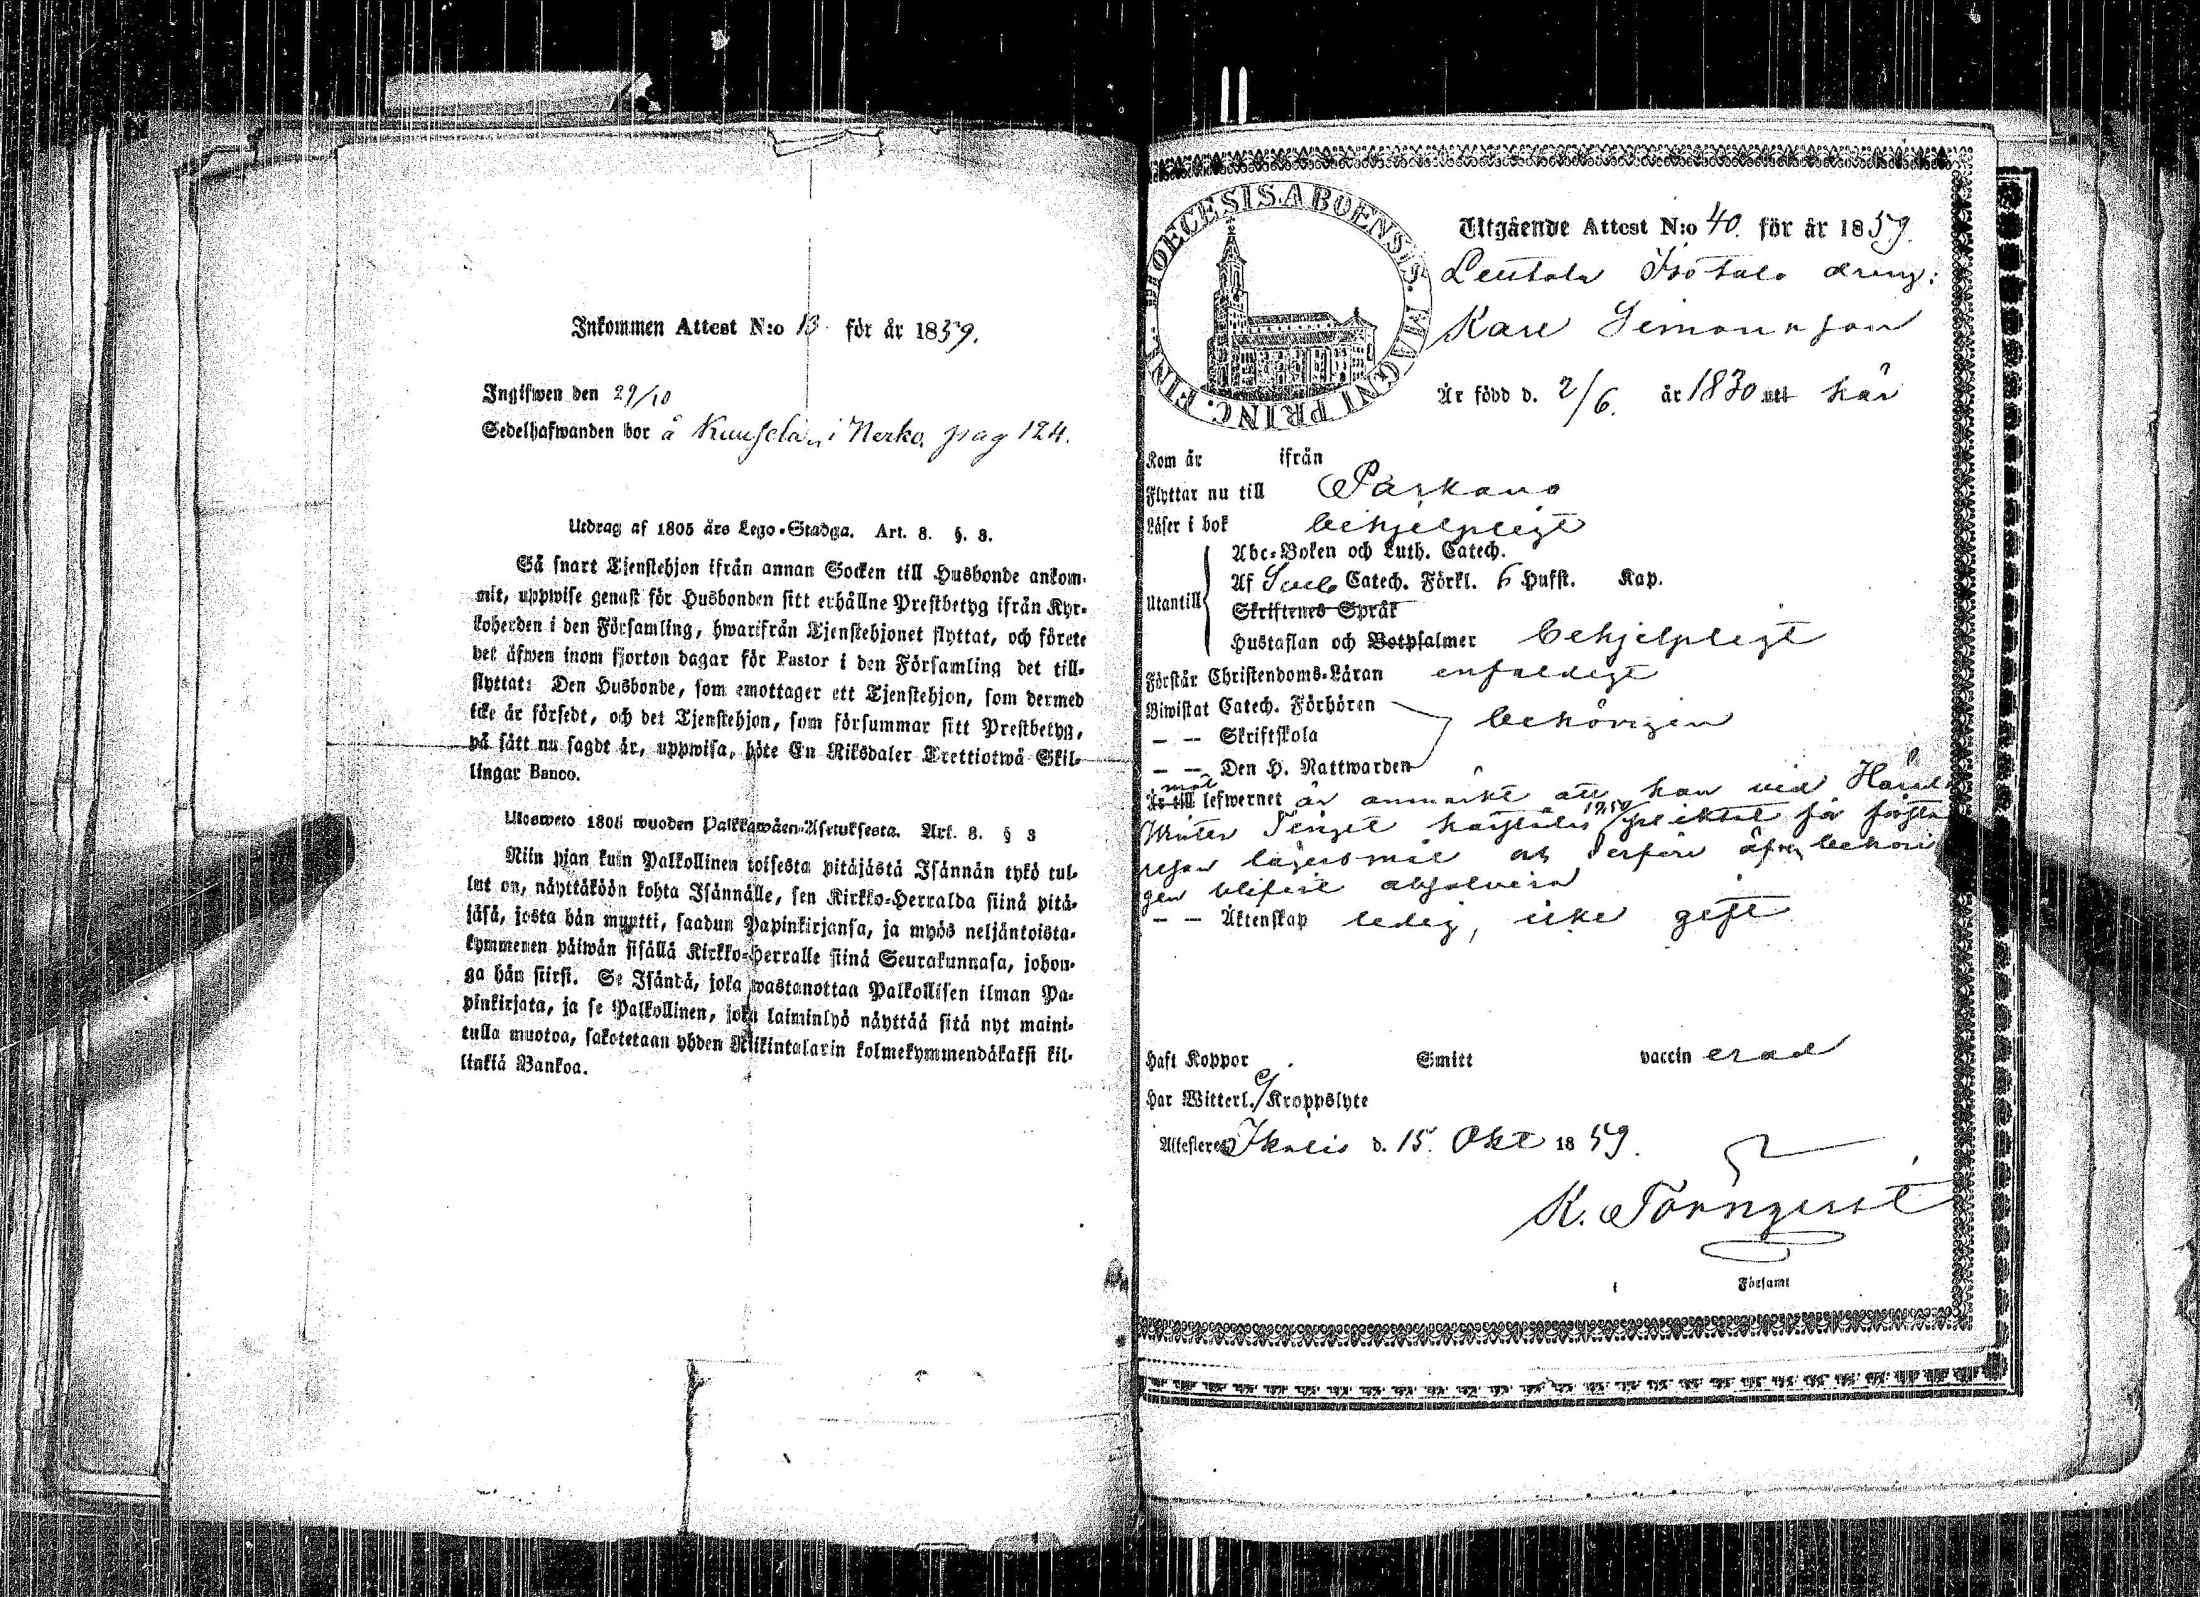 Inkommen Attest N:o 13. för år 1859.
Ingifwen den 29/10
Sedelhafwanden bor å Kuusela, i Nerko, pag 124.
Utdrag af 1805 års Lego-Stadga. Art. 8. §. 8.
Så snart Tjenstehjon ifrån annan Socken till Husbonde ankom-
mit, uppwise genast för Husbonden sitt erhållne Prestbetyg ifrån Kyr-
koherden i den Församling, hwarifrån Tjenstehjonet flyttat, och förete
det äfwen inom fjorton dagar för Pastor i den Församling det till-
flyttat: Den Husbonde, som emottager ett Tjenstehjon, som dermed
icke är försedt, och det Tjenstehjon, som försummar sitt Prestbetyg,
på sätt nu sagdt är, uppwisa, böte En Riksdaler Trettiotwå Skil-
lingar Banco.
Ulosweto 1805 wuoden Palkkawäen-Asetuksesta. Art. 8. § 8
Niin pian kuin Palkollinen toisesta pitäjästä Isännän tykö tul-
lut on, näyttäköön kohta Isännälle, sen Kirkko-Herralda siinä pitä-
jäsä, josta hän muutti, saadun Papinkirjansa, ja myös neljäntoista-
kymmenen päiwän sisällä Kirkko-Herralle siinä Seurakunnasa, johon-
ga hän siirsi. Se Isäntä, joka wastanottaa Palkollisen ilman Pa-
pinkirjata, ja se Palkollinen, joka laiminlyö näyttää sitä nyt maini-
tulla muotoa, sakotetaan yhden Riikintalarin kolmekymmendäkaksi kil-
linkiä Bankoa.
DIOECESIS ABOENSIS. MAGNI PRINC. FINL.
Utgående Attest N:o 40. för år 1859.
Leutola Isotalo dreng:
Karl Simonsson
Är född d. 2/6. år 1830 uti här
Kom år ifrån
Flyttar nu till Parkano
Läser i bok behjelpligt
Utantill
Abc-Boken och Luth. Catech.
Af Catech. Förkl. 6 Hufst. Kap.
Skriftenes Språk
Hustaflan och Botpsalmer behjelpligt
Förstår Christendoms-Läran enfaldigt
Biwistat Catech. Förhören
— — Skriftskola behörigen
— — Den H. Nattwarden
Är till lefwernet är anmärkt att han vid Härads
Winter Tinget 1859 pliktat för första
resan lägersmål och derföre äfven behöri
gen blifvit absolverad
— — Äktenskap ledig, icke gift
Haft Koppor Smitt vaccin erad
Har Witterl. Kroppslyte
Attesteres Ikalis d. 15. Okt 1859.
K. Törnqvist
Församl